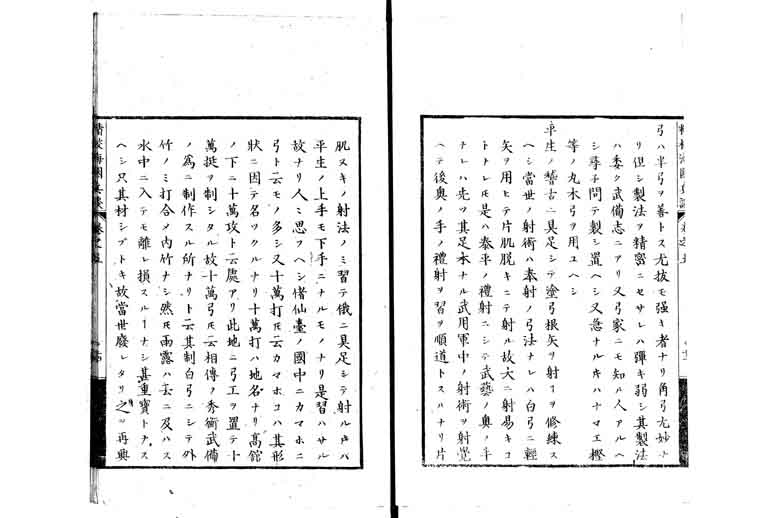 弓ハ半弓ヲ善トス尤抜モ强キ者ナリ角弓尤妙ナ
リ但シ製法ヲ精密ニセサレハ彈キ弱シ其製法
ハ委ク武備志ニアリ又弓家ニモ知ル人アルヘ
シ尋子問テ製シ置ヘシ又急ナルキハナマエ樫
等ノ丸木弓ヲ用ユヘシ
平生ノ稽古ニ具足シテ塗弓根矢ヲ射ヿヲ修練ス
ヘシ當世ノ射術ハ奉射ノ弓法ナレハ白弓ニ輕
矢ヲ用ヒテ片肌脱キニテ射ル故大ニ射易キコ
トトレモ是ハ泰平ノ禮射ニシテ武藝ノ奥ノ手
ナレハ先ツ其足本ナル武用軍中ノ射術ヲ射覺
ヘテ後奥ノ手ノ禮射ヲ習フ順道トスルナリ片
肌ヌキノ射法ノミ習テ俄ニ具足シテ射ルキハ
平生ノ上手モ下手ニナルモノナリ是習ハサル
故ナリ人ミ思フヘシ偖仙臺ノ國中ニカマホコ
弓ト云モノ多シ又十萬打モ云カマホコハ其形
狀ニ因テ名ツクルナリ十萬打ハ地名ナリ高舘
ノ下ニ十萬坎ト云處アリ此地ニ弓工ヲ置テ十
萬挺ヲ制シタル故十萬弓モ云相傳フ秀衡武備
ノ爲ニ制作スル所ナリト其制白弓ニシテ外
竹ノミ打合メ内竹ナシ然モ雨露ハ云ニ及ハス
水中ニ入テモ離レ損スルーナシ甚重寶トナス
ヘシ只其材シブトキ故當世廢レタリ之ヲ再興
精校海國兵談 卷之五